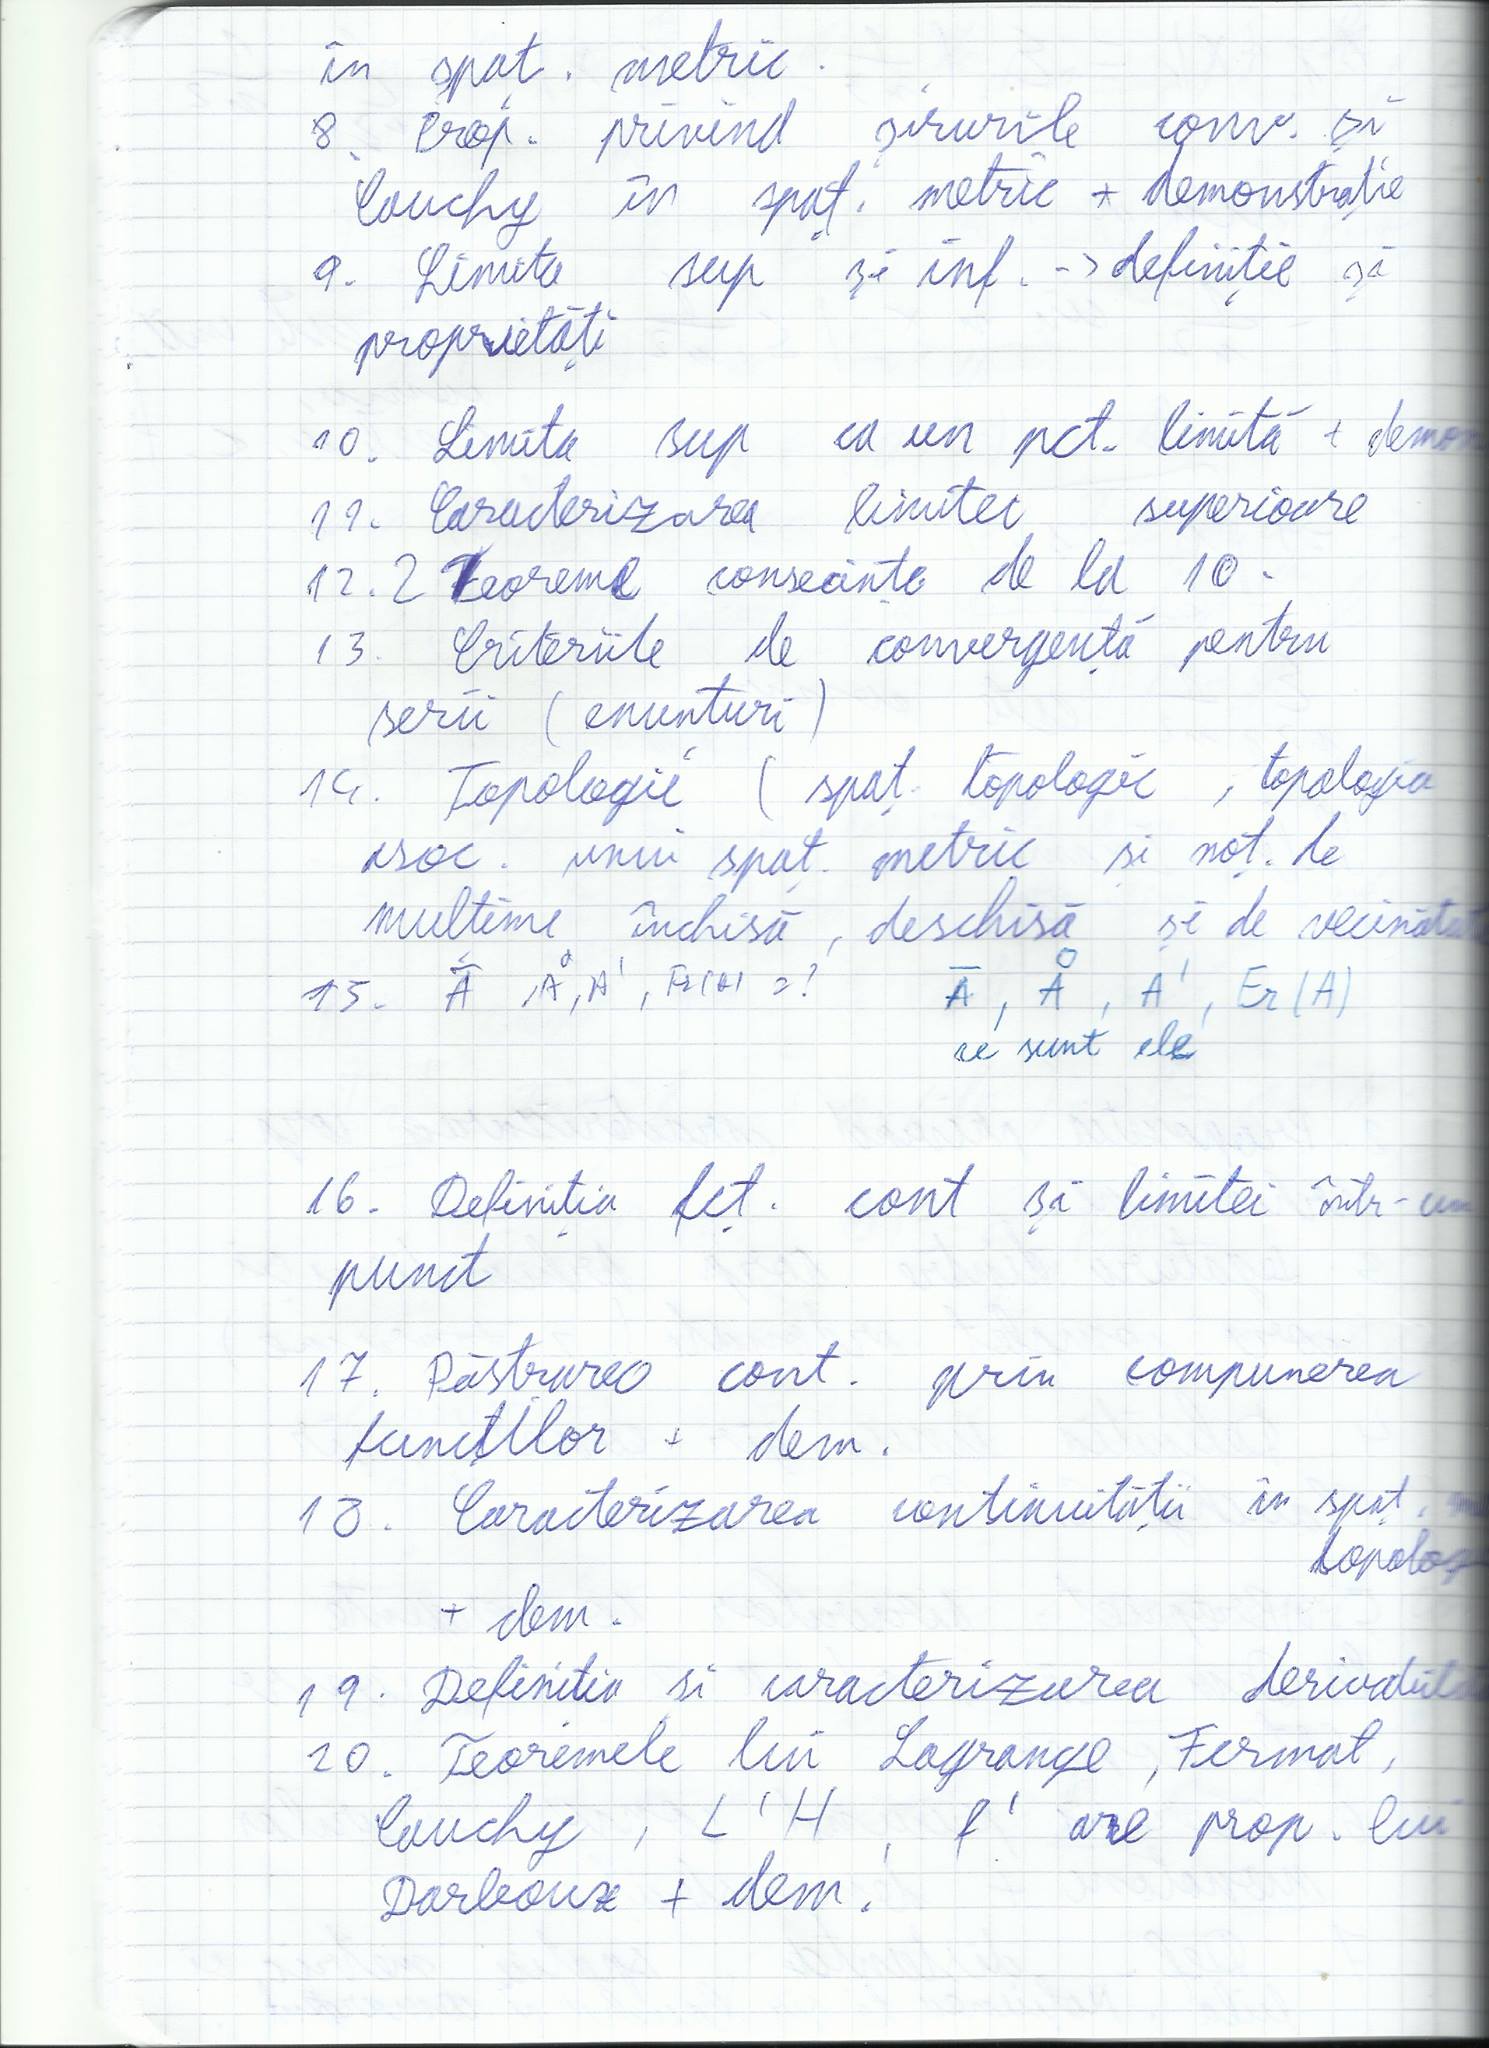 în spaț. metric.
8. Prop. privind șirurile conv. și
Cauchy în spaț. metric + demonstrație
9. Limita sup și inf. -> definiție și
proprietăți
10. Limita sup ca un pct. limită + demon
11. Caracterizarea limitei superioare
12. 2 Teoreme consecințe de la 10.
13. Criteriile de convergență pentru
serii (enunturi)
14. Topologie (spaț. topologic, topologia
asoc. unui spaț. metric și noț. de
multime închisă, deschisă și de vecinătate
15. Ā, Å, A', Fr(A) = ? Ā, Å, A', Fr(A)
ce sunt ele
16. Definiția fcț. cont și limitei într-un
punct
17. Păstrarea cont. prin compunerea
funcțiilor + dem.
18. Caracterizarea continuității în spaț.
topolog
+ dem.
19. Definitia si caracterizarea
20. Teoremele lui Lagrange, Fermat,
Cauchy, L'H, f' are prop. lui
Darboux + dem.